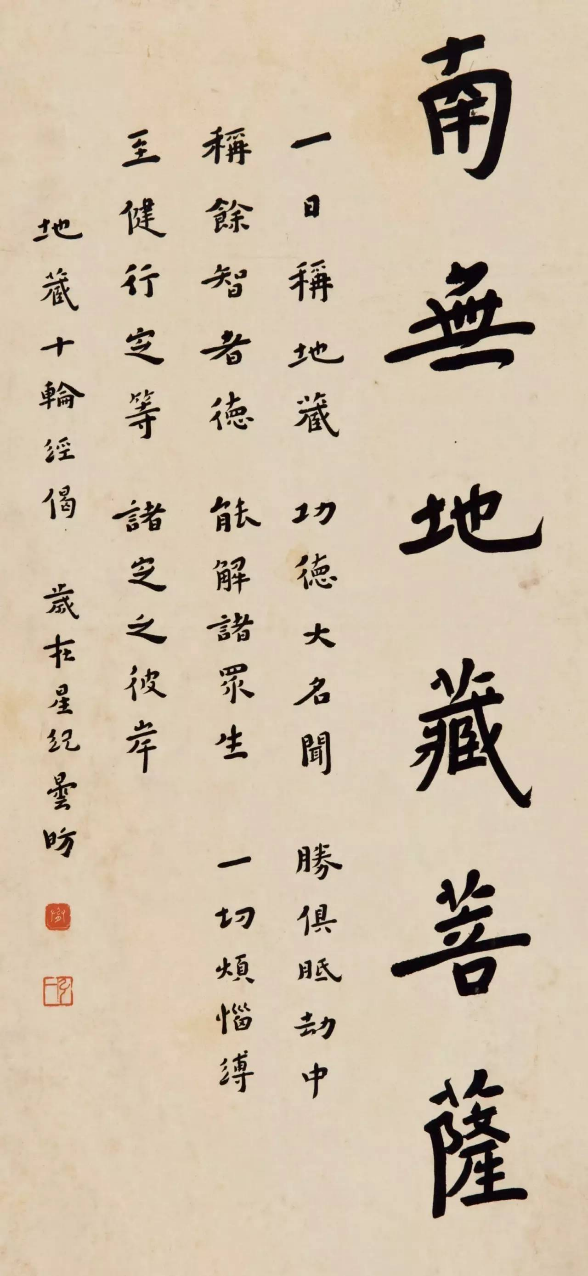 南無地藏菩薩
一日稱地藏 功德大名聞 勝俱胝劫中
稱餘智者德 能解諸眾生 一切煩惱縛
至健行定等 諸定之彼岸
地藏十輪經偈 歲在星紀曇昉